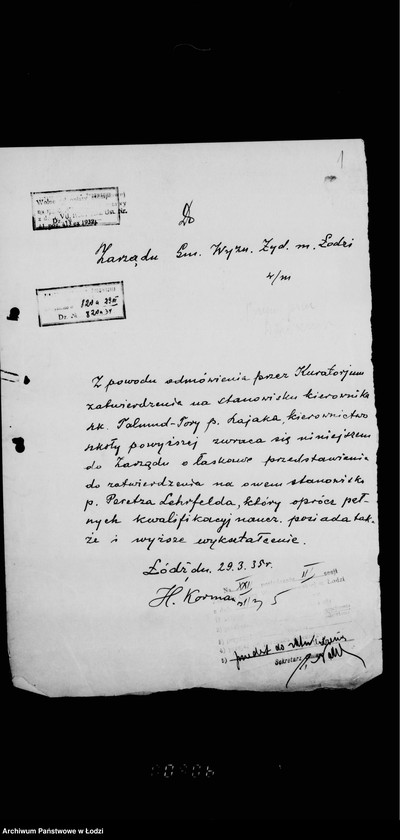 1
Do
Zarządu Gm. Wyzn. Żyd. m. Łodzi
w/m
Dr. N
Z powodu odmówienia przez Kuratorjum
zatwierdzenia na stanowisku kierownika
szk. Talmud-Tory p. Łajaka, kierownictwo
szkoły powyższej zwraca się niniejszem
do Zarządu o łaskawe przedstawienie
do zatwierdzenia na owem stanowisku
p. Peretza Lehrfelda, który oprócz peł-
nych kwalifikacyj naucz. posiada tak-
że i wyższe wykształcenie.
Łódź, dn. 29.3.35 r.
H. Korman
Sekretarz
Archiwum Państwowe w Łodzi